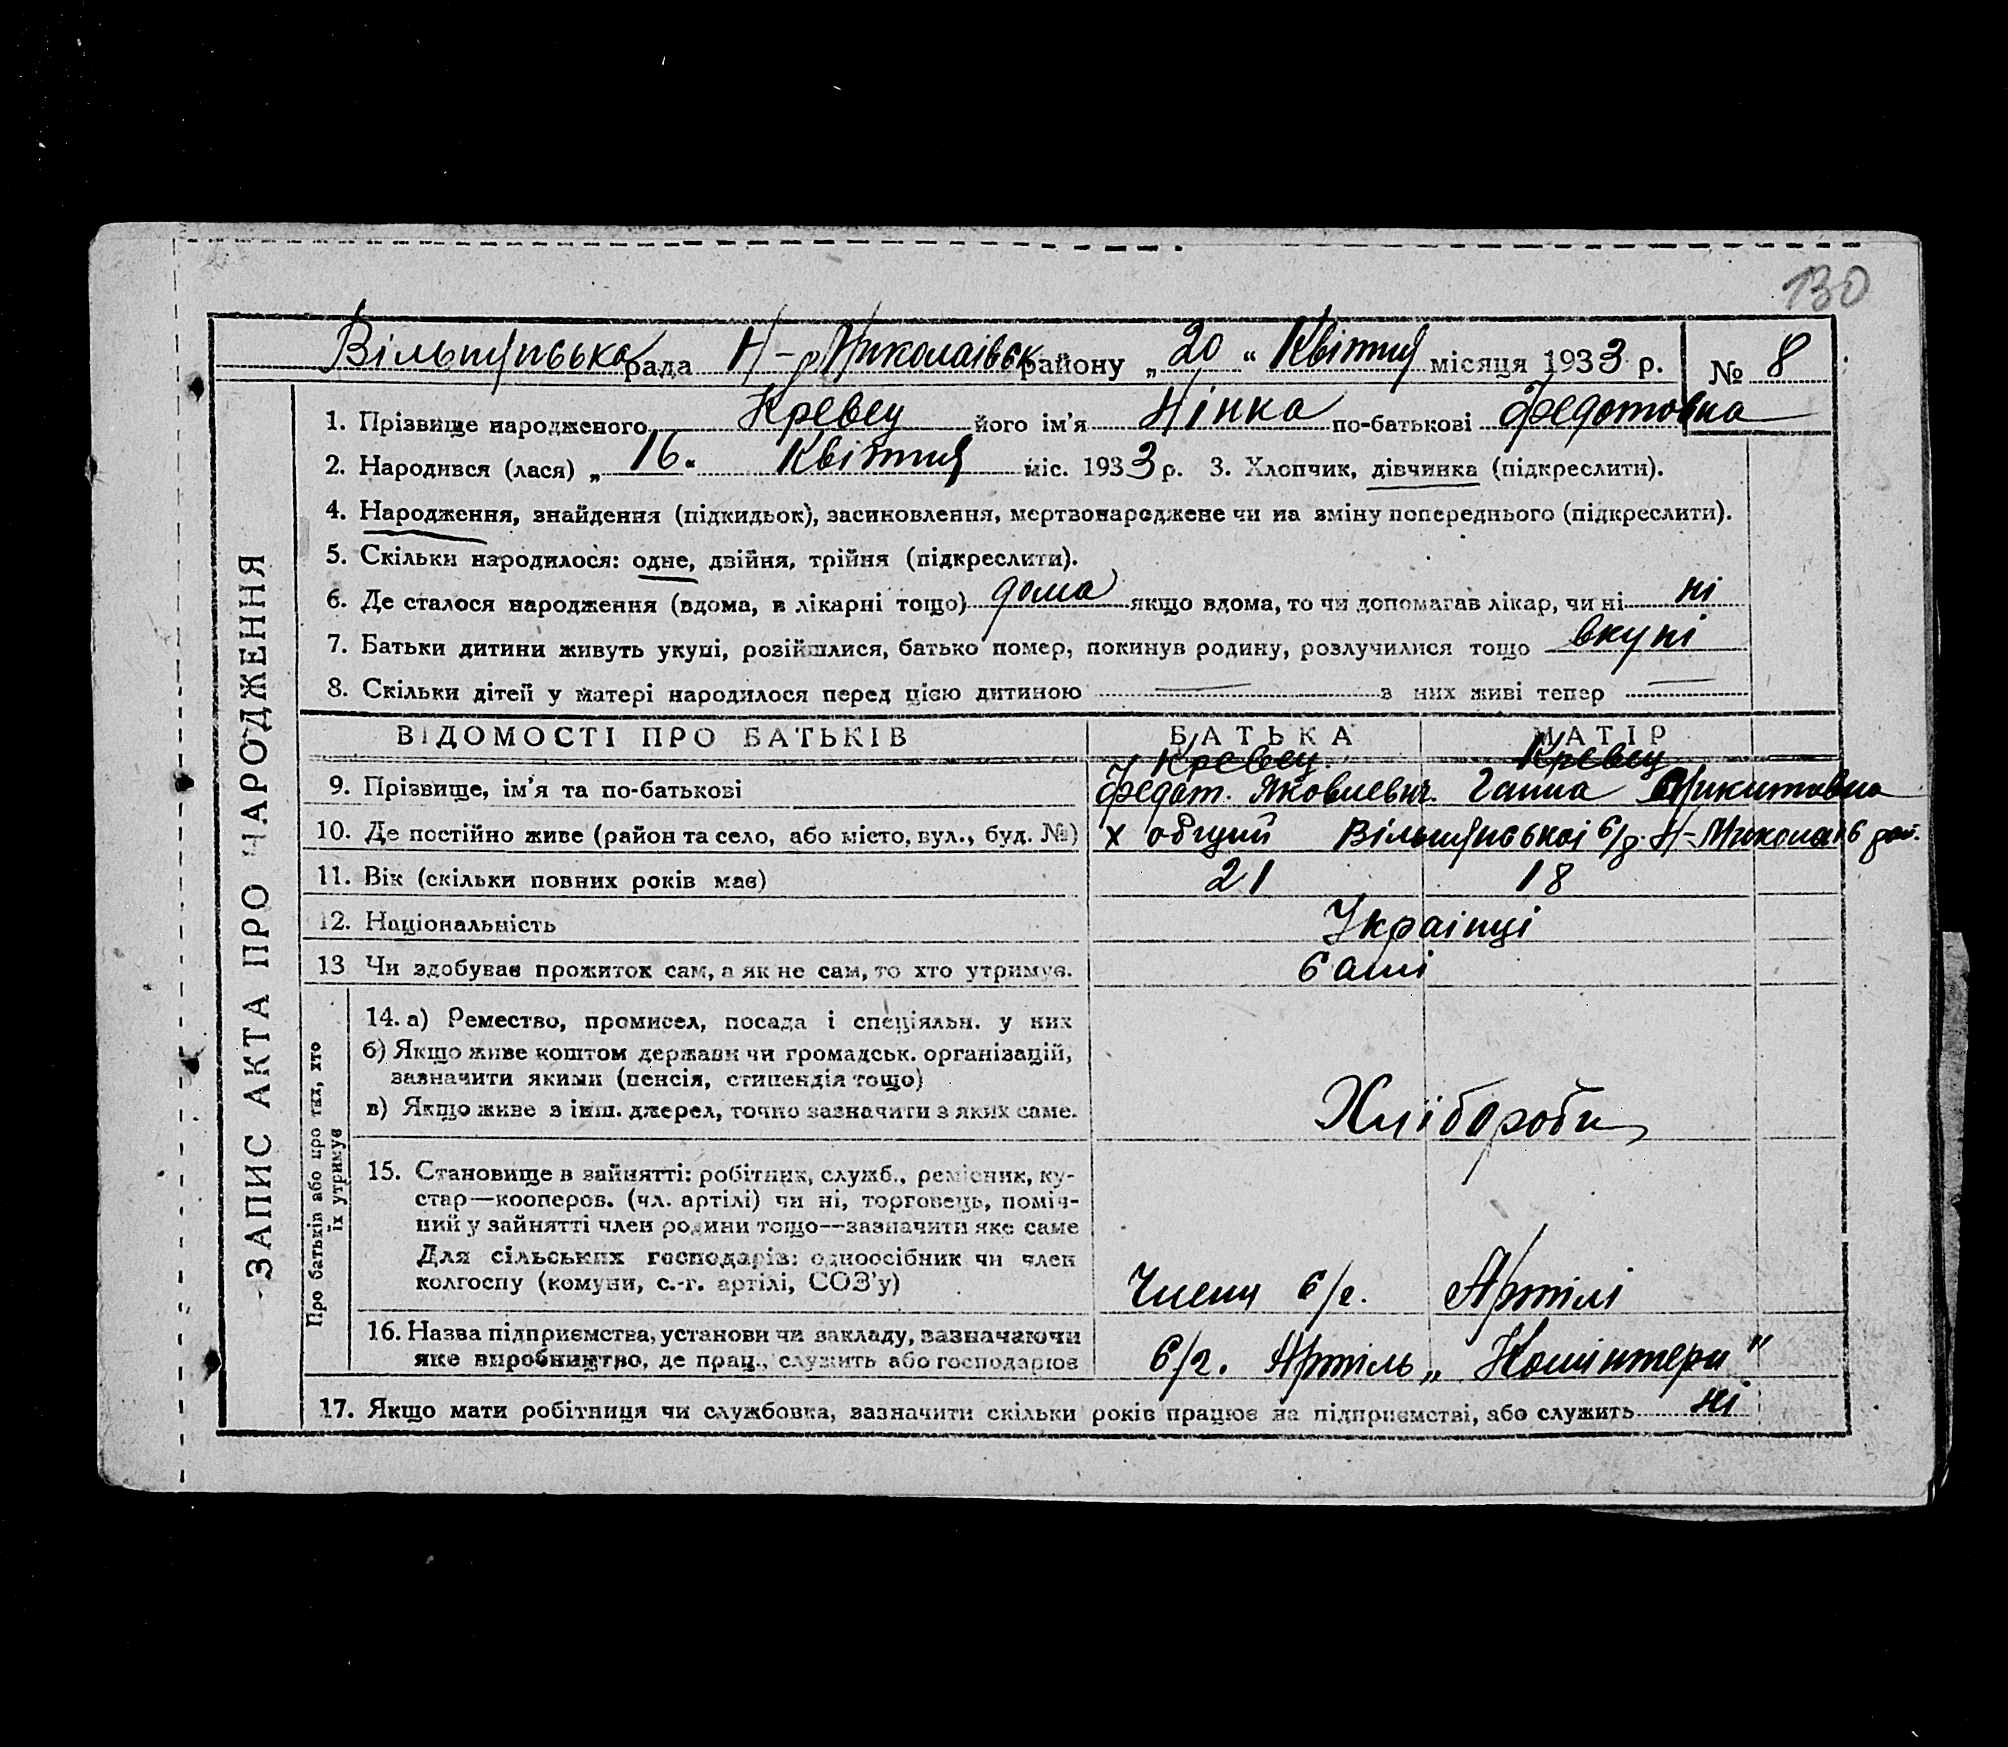 130
Вільшунська рада Н-Миколаівськ району „20“ Квітня місяця 1933 р. № 8
1. Прізвище народженого Кревец його ім'я Нінка по-батькові Федотовна
2. Народився (лася) „16“ Квітня міс. 1933 р. 3. Хлопчик, дівчинка (підкреслити).
4. Народження, знайдення (підкидьок), засиновлення, мертвонароджене чи на зміну попереднього (підкреслити).
5. Скільки народилося: одне, двійня, трійня (підкреслити).
6. Де сталося народження (вдома, в лікарні тощо) дома якщо вдома, то чи допомагав лікар, чи ні ні
7. Батьки дитини живуть укупі, розійшлися, батько помер, покинув родину, розлучилися тощо вкупі
8. Скільки дітей у матері народилося перед цією дитиною — з них живі тепер —
ЗАПИС АКТА ПРО НАРОДЖЕННЯ
ВІДОМОСТІ ПРО БАТЬКІВ БАТЬКА МАТІР
Кревец Кревец
9. Прізвище, ім'я та по-батькові Федот. Яковлевич. Ганна Микитовна
10. Де постійно живе (район та село, або місто, вул., буд. №) х общий с/р. Н-Миколаів рай.
11. Вік (скільки повних років має) 21 18
12. Національність Украінці
13 Чи здобував прожиток сам, а як не сам, то хто утримує. самі
Про батьків або про тих, хто
їх утримує
14. а) Ремество, промисел, посада і спеціяльн. у них
б) Якщо живе коштом держави чи громадськ. організацій,
зазначити якими (пенсія, стипендія тощо)
в) Якщо живе з інш. джерел, точно зазначити з яких саме.
Хлібороби
15. Становище в зайнятті: робітник, служб., ремісник, ку-
стар—кооперов. (чл. артілі) чи ні, торговець, поміч-
ний у зайнятті член родини тощо—зазначити яке саме
Для сільських господарів: одноосібник чи член
колгоспу (комуни, с.-г. артілі, СОЗ'у) Члени с/г. Артілі
16. Назва підприємства, установи чи закладу, зазначаючи
яке виробництво, де прац., служить або господарює с/г. Артіль „Комінтерн"
17. Якщо мати робітниця чи службовка, зазначити скільки років працює на підприємстві, або служить ні